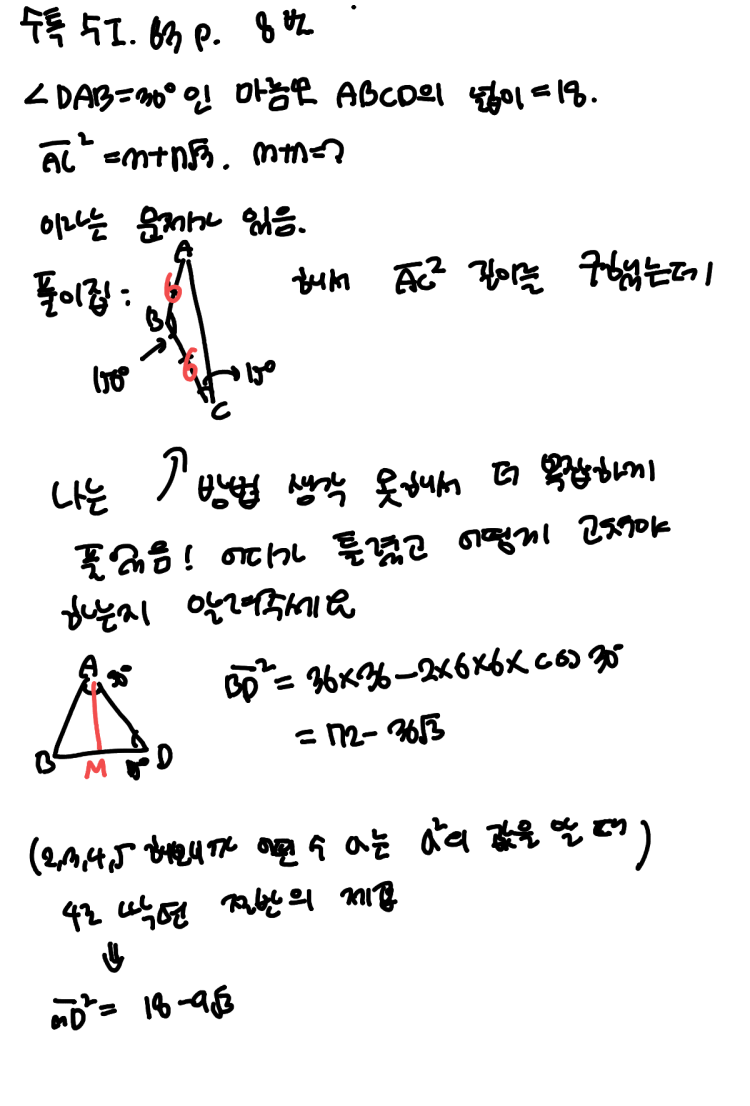 수특 수I. 63 p. 8번
∠DAB=30°인 마름모 ABCD의 넓이=18.
AC² = m+n√3. m+n=?
이라는 문제가 있음.
풀이집:
A
6
B
6
150°
15°
C
해서 AC² 길이를 구했는데
나는 ↗ 방법 생각 못해서 더 복잡하게
풀었음! 어디가 틀렸고 어떻게 고쳐야
하는지 알려주세요
A 30°
B M D
BD² = 36×36-2×6×6×cos 30°
= 72-36√3
(2,3,4,5 해보니까 어떤 수 a는 a²의 값을 알 때)
4로 나눈 절반의 제곱
⇓
MD² = 18-9√3